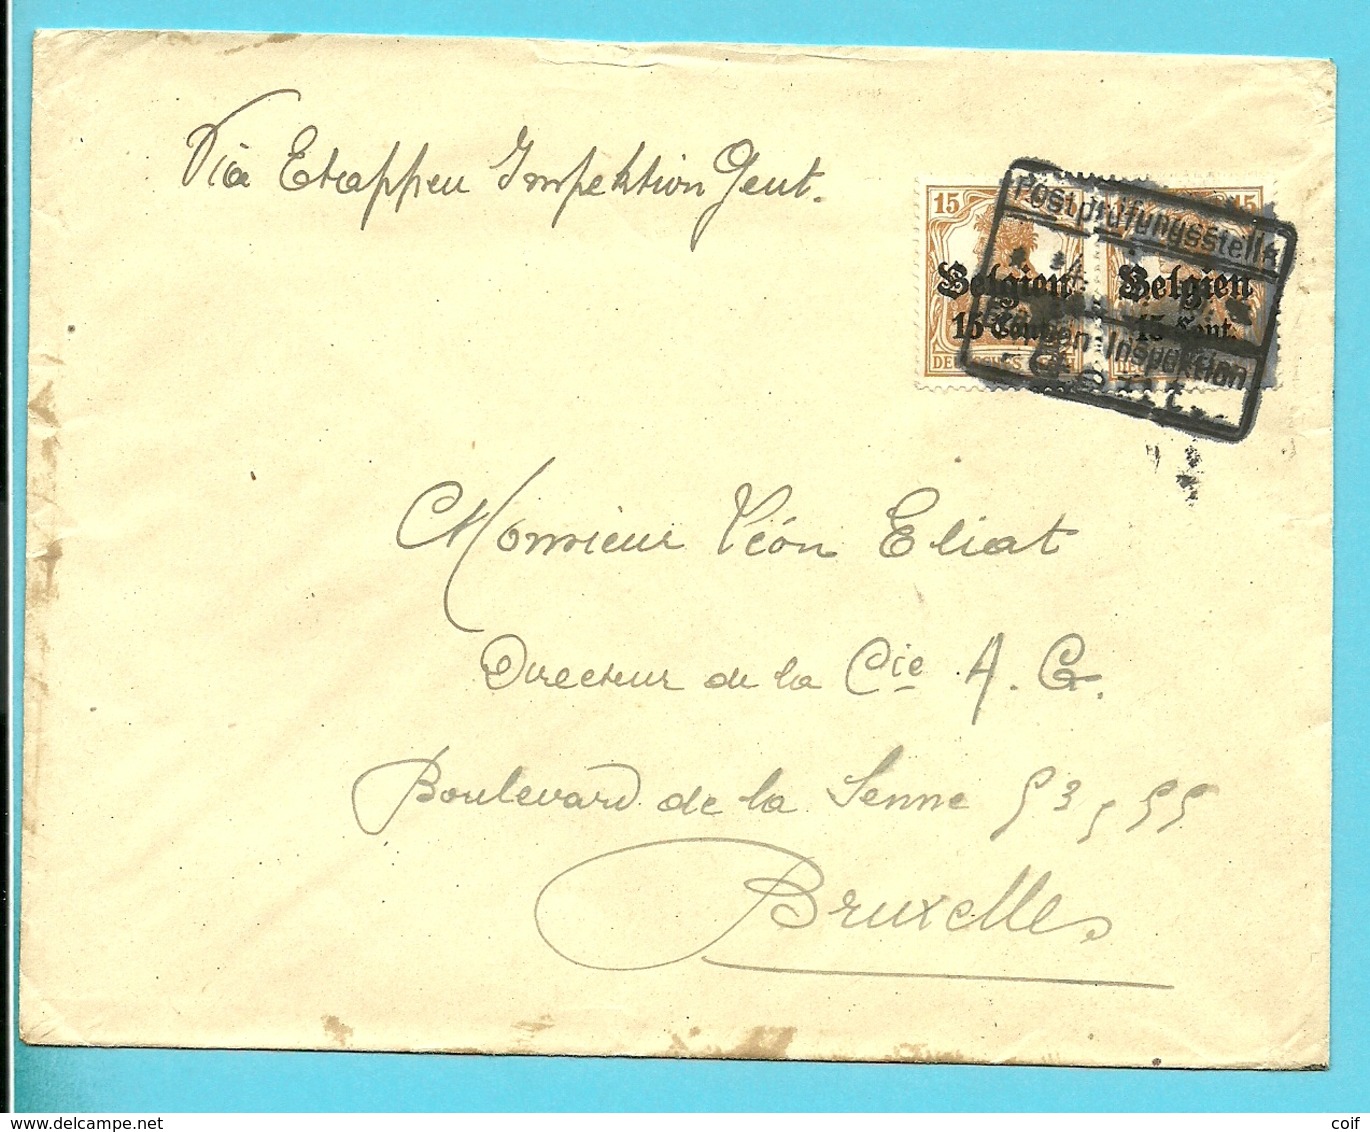 Via Etappen Inspektion Gent.
15 15
Postprüfungsstelle
Belgien Belgien
15 Cent. 15 Cent.
Etappen-Inspektion
Gent.
Monsieur Léon Eliat
Directeur de la Cie A. G.
Boulevard de la Senne 53, 55
Bruxelles
www.delcampe.net
coif